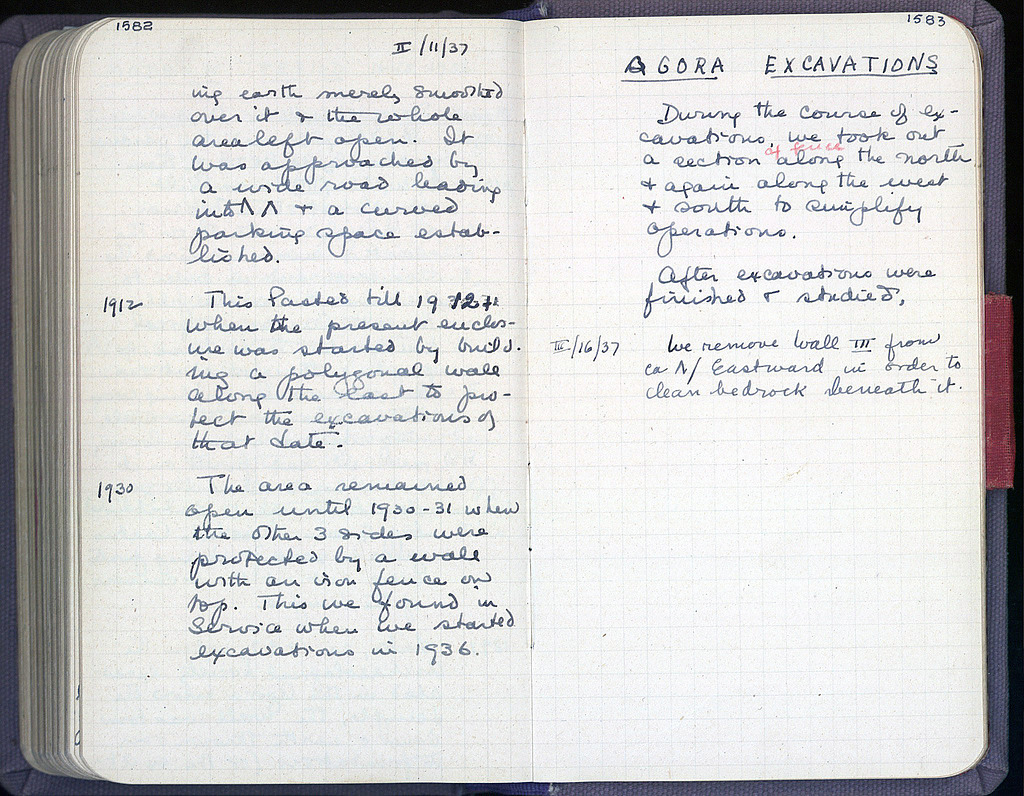 1582
II/11/37
ing earth merely smoothed
over it & the whole
area left open. It
was approached by
a wide road leading
into ΛΛ & a curved
parking space estab-
lished.
1912 This lasted till 1912
when the present enclos-
ure was started by build-
ing a polygonal wall
along the East to pro-
tect the excavations of
that date.
1930 The area remained
open until 1930-31 when
the other 3 sides were
protected by a wall
with an iron fence on
top. This we found in
Service when we started
excavations in 1936.
1583
AGORA EXCAVATIONS
During the course of ex-
cavations, we took out
of fence
a section along the north
& again along the west
& south to simplify
operations.
After excavations were
finished & studied,
III/16/37 We remove Wall III from
ca Eastward in order to
clean bedrock beneath it.